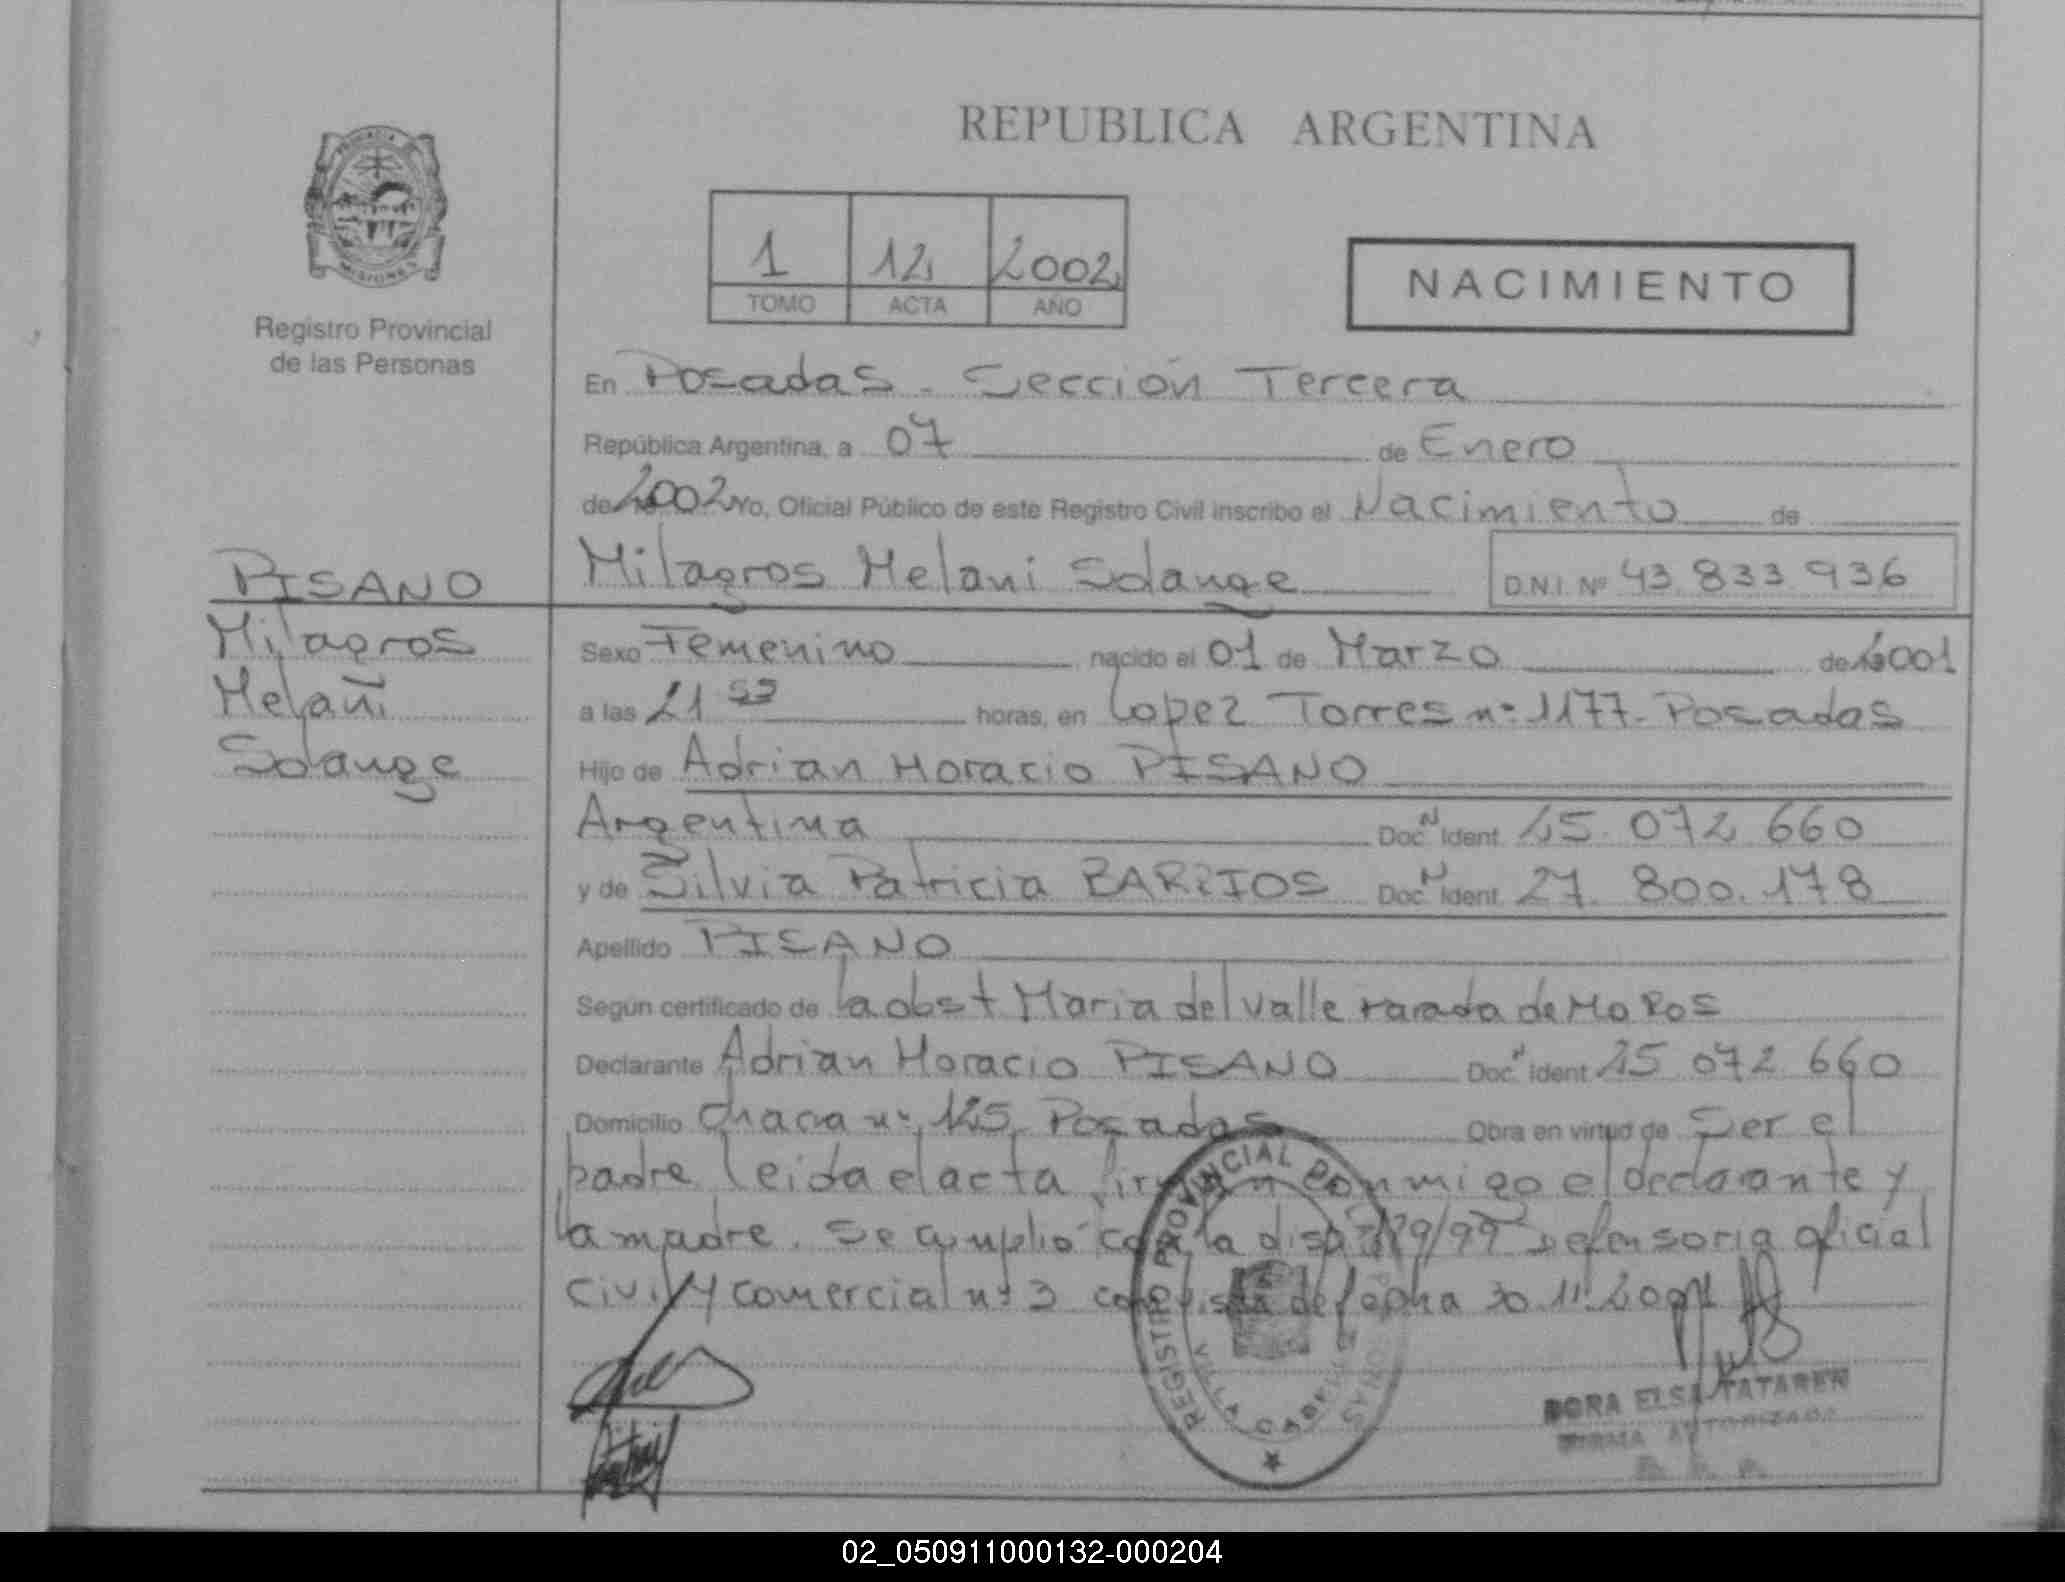 REPUBLICA ARGENTINA
PROVINCIA
MISIONES
Registro Provincial
de las Personas
1 12 2002
TOMO ACTA AÑO
NACIMIENTO
En Posadas - Sección Tercera
República Argentina, a 07 de Enero
de 2002 Yo, Oficial Público de este Registro Civil inscribo el Nacimiento de
Milagros Melani Solange D.N.I. Nº 43.833.936
PISANO
Milagros
Melañi
Solange
Sexo Femenino nacido el 01 de Marzo de 2001
a las 21 horas, en Lopez Torres nº 1177 - Posadas
Hijo de Adrian Horacio PISANO
Argentina Doc. N Ident. 25.072.660
y de Silvia Patricia BARRIOS Doc. N Ident. 27.800.178
Apellido PISANO
Según certificado de la obst Maria del Valle de
Declarante Adrian Horacio PISANO Doc. N Ident. 25.072.660
Domicilio nº 125 Posadas Obra en virtud de Ser el
padre leida el acta firman conmigo el declarante y
la madre. Se cumplió con la disp /99 Defensoria oficial
civil y comercial nº 3 con vista de fecha 30.11.2001
REGISTRO PROVINCIAL DE
DORA ELSA TATAREN
FIRMA AUTORIZADA
02_050911000132-000204